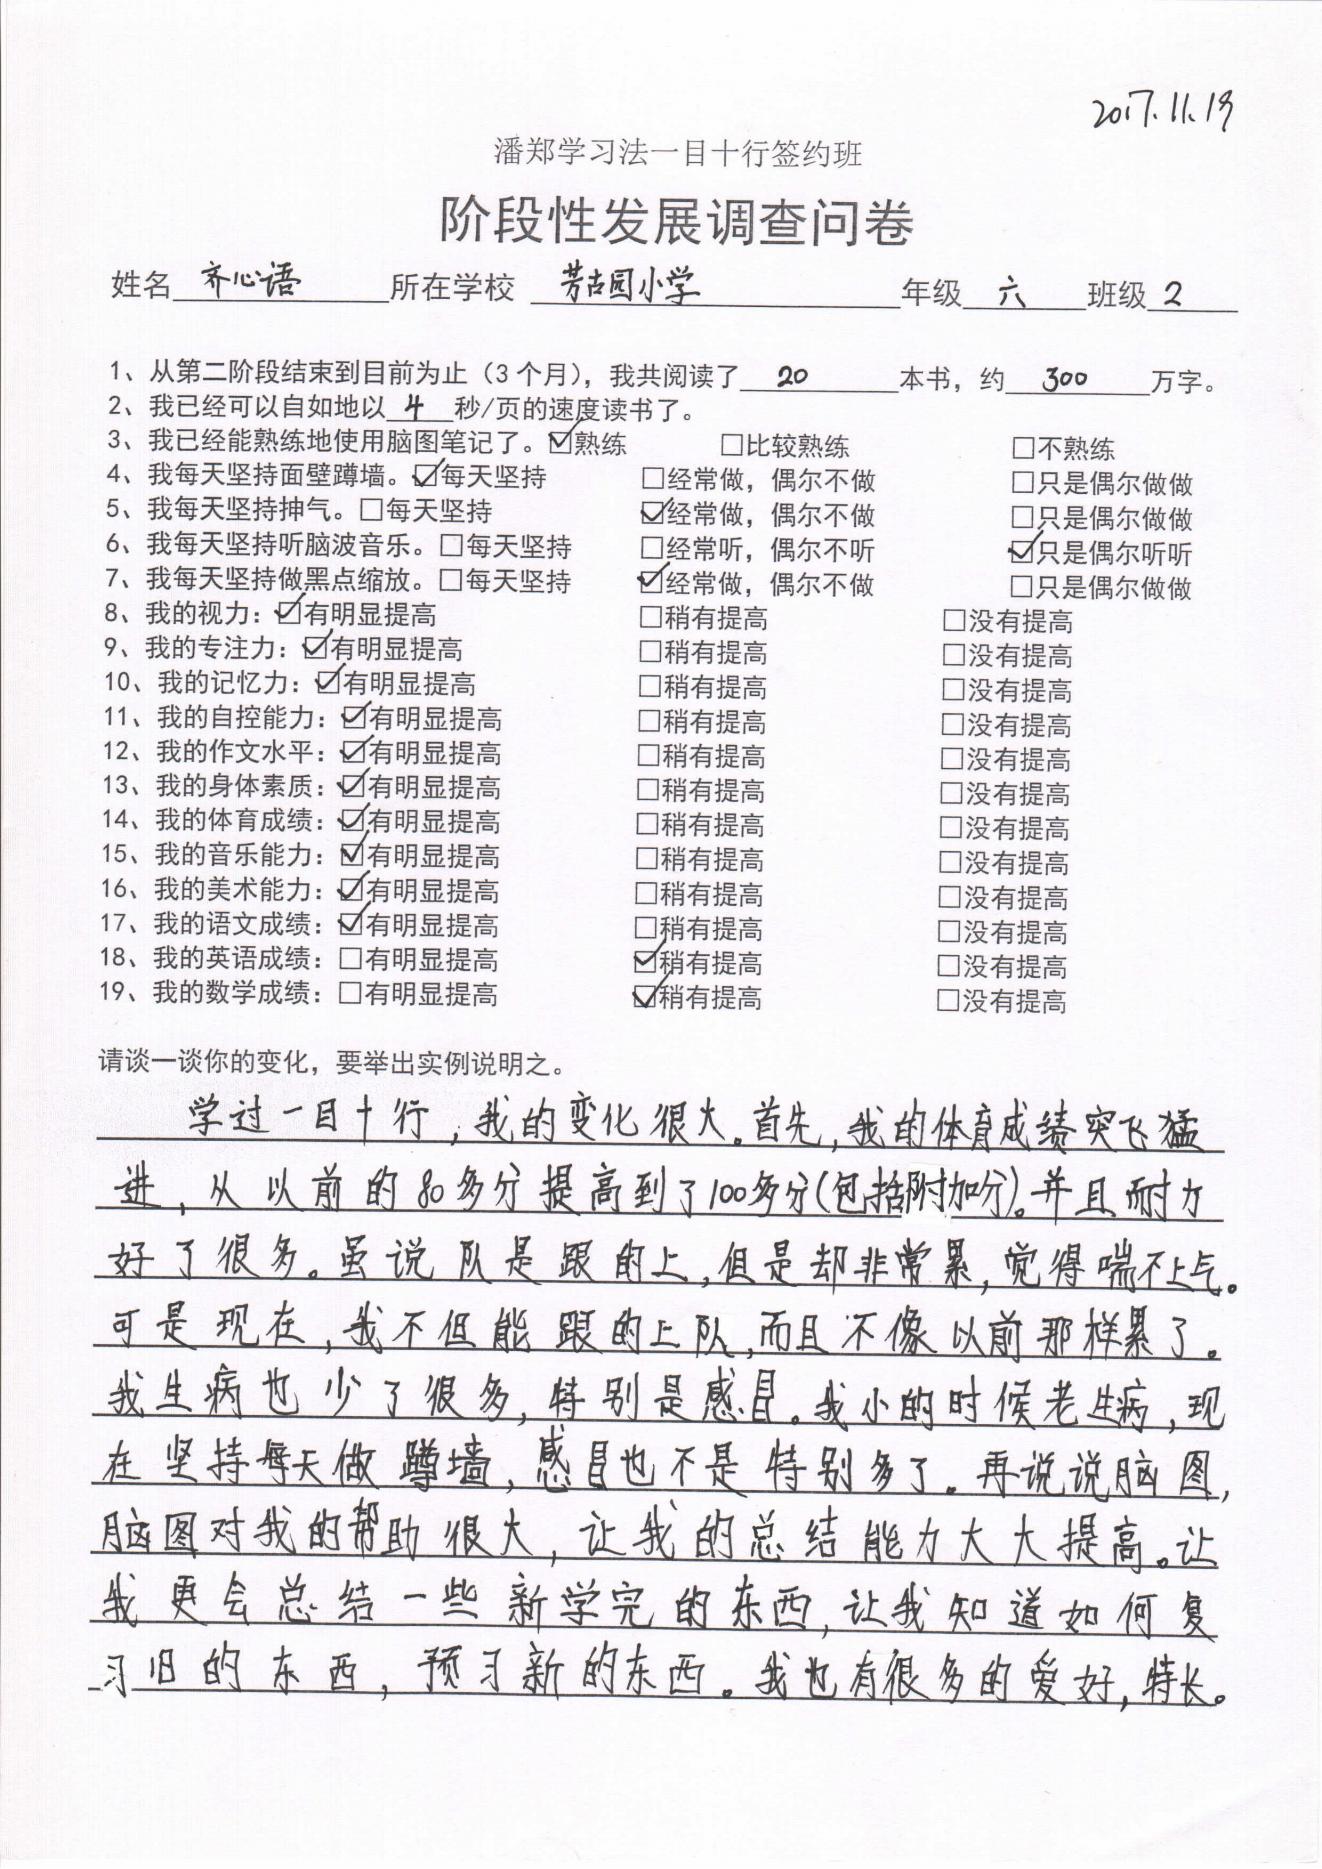 2017.11.19
潘郑学习法一目十行签约班
阶段性发展调查问卷
姓名 齐心语 所在学校 芳古园小学 年级 六 班级 2
1、从第二阶段结束到目前为止（3个月），我共阅读了 20 本书，约 300 万字。
2、我已经可以自如地以 4 秒/页的速度读书了。
3、我已经能熟练地使用脑图笔记了。☑熟练 □比较熟练 □不熟练
4、我每天坚持面壁蹲墙。☑每天坚持 □经常做，偶尔不做 □只是偶尔做做
5、我每天坚持抻气。□每天坚持 ☑经常做，偶尔不做 □只是偶尔做做
6、我每天坚持听脑波音乐。□每天坚持 □经常听，偶尔不听 ☑只是偶尔听听
7、我每天坚持做黑点缩放。□每天坚持 ☑经常做，偶尔不做 □只是偶尔做做
8、我的视力：☑有明显提高 □稍有提高 □没有提高
9、我的专注力：☑有明显提高 □稍有提高 □没有提高
10、我的记忆力：☑有明显提高 □稍有提高 □没有提高
11、我的自控能力：☑有明显提高 □稍有提高 □没有提高
12、我的作文水平：☑有明显提高 □稍有提高 □没有提高
13、我的身体素质：☑有明显提高 □稍有提高 □没有提高
14、我的体育成绩：☑有明显提高 □稍有提高 □没有提高
15、我的音乐能力：☑有明显提高 □稍有提高 □没有提高
16、我的美术能力：☑有明显提高 □稍有提高 □没有提高
17、我的语文成绩：☑有明显提高 □稍有提高 □没有提高
18、我的英语成绩：□有明显提高 ☑稍有提高 □没有提高
19、我的数学成绩：□有明显提高 ☑稍有提高 □没有提高
请谈一谈你的变化，要举出实例说明之。
学过一目十行，我的变化很大。首先，我的体育成绩突飞猛
进，从以前的80多分提高到了100多分(包括附加分)。并且耐力
好了很多。虽说队是跟的上，但是却非常累，觉得喘不上气。
可是现在，我不但能跟的上队，而且不像以前那样累了。
我生病也少了很多，特别是感冒。我小的时候老生病，现
在坚持每天做蹲墙，感冒也不是特别多了。再说说脑图，
脑图对我的帮助很大，让我的总结能力大大提高。让
我更会总结一些新学完的东西，让我知道如何复
习旧的东西，预习新的东西。我也有很多的爱好，特长。